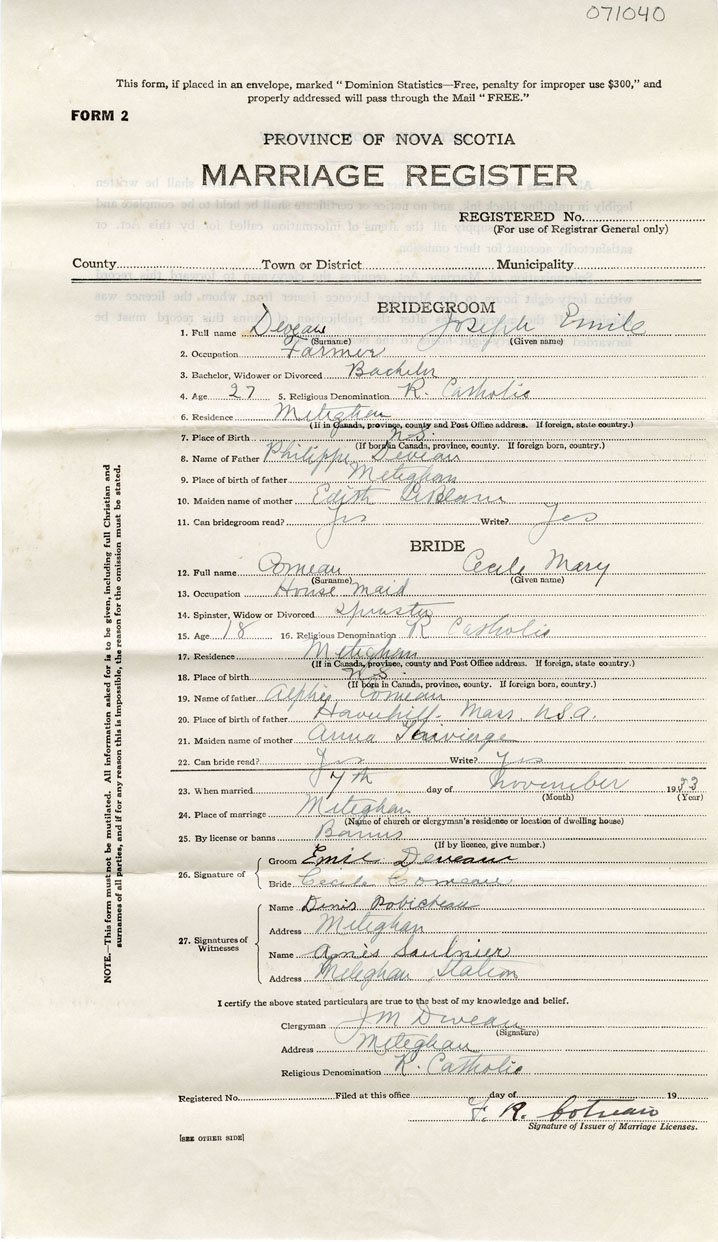 071040
This form, if placed in an envelope, marked "Dominion Statistics—Free, penalty for improper use $300," and
properly addressed will pass through the Mail "FREE."
FORM 2
PROVINCE OF NOVA SCOTIA
MARRIAGE REGISTER
REGISTERED No.
(For use of Registrar General only)
County Town or District Municipality
BRIDEGROOM
1. Full name Deveau Joseph Emile
(Surname) (Given name)
2. Occupation Farmer
3. Bachelor, Widower or Divorced Bachelor
4. Age 27 5. Religious Denomination R. Catholic
6. Residence Meteghan
(If in Canada, province, county and Post Office address. If foreign, state country.)
7. Place of Birth N.S.
(If born in Canada, province, county. If foreign born, country.)
8. Name of Father Philippe Deveau
9. Place of birth of father Meteghan
10. Maiden name of mother Edith LeBlanc
11. Can bridegroom read? Yes Write? Yes
BRIDE
12. Full name Comeau Cecile Mary
(Surname) (Given name)
13. Occupation House maid
14. Spinster, Widow or Divorced Spinster
15. Age 18 16. Religious Denomination R Catholic
17. Residence Meteghan
(If in Canada, province, county and Post Office address. If foreign, state country.)
18. Place of birth N.S.
(If born in Canada, province, county. If foreign born, country.)
19. Name of father Alphie Comeau
20. Place of birth of father Haverhill Mass. U.S.A.
21. Maiden name of mother Anna
22. Can bride read? Yes Write? Yes
23. When married 7th day of November 1933
(Month) (Year)
24. Place of marriage Meteghan
(Name of church or clergyman's residence or location of dwelling house)
25. By license or banns Banns
(If by licence, give number.)
26. Signature of Groom Emile Deveau
Bride Cecile Comeau
27. Signatures of Witnesses
Name Denis Robicheau
Address Meteghan
Name Saulnier
Address Meteghan Station
I certify the above stated particulars are true to the best of my knowledge and belief.
Clergyman J M Deveau
(Signature)
Address Meteghan
Religious Denomination R. Catholic
Registered No. Filed at this office day of 19
F. R.
Signature of Issuer of Marriage Licenses.
[SEE OTHER SIDE]
NOTE.—This form must not be mutilated. All information asked for is to be given, including full Christian and
surnames of all parties, and if for any reason this is impossible, the reason for the omission must be stated.